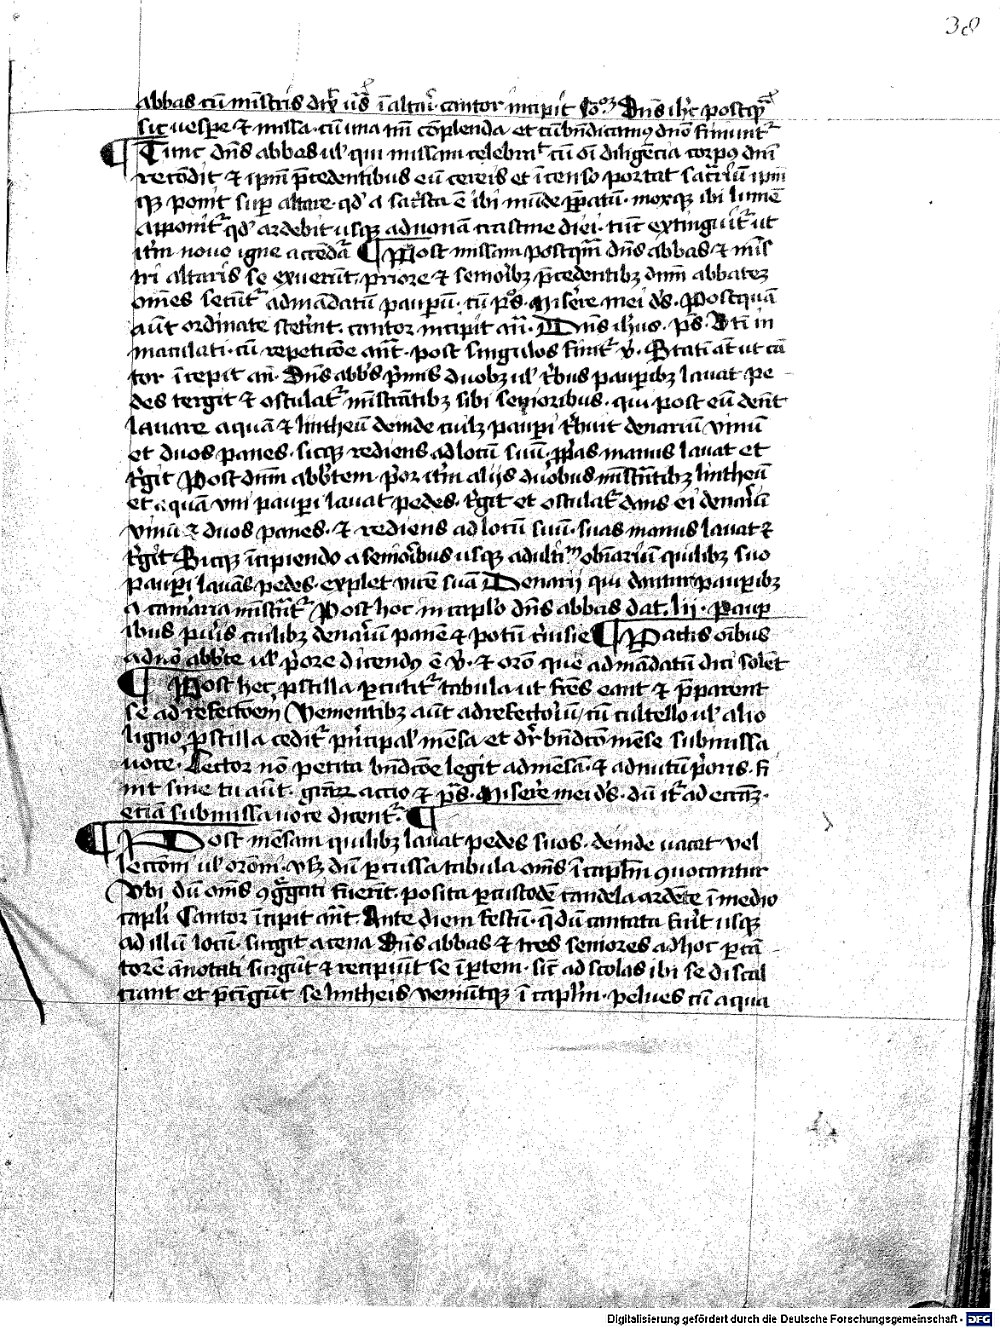 38
abbas cū mīstris dixͬ ūs ī altaͬ. cantor incipit Coᵒꝫ Dn̄s ihc postqᵃ
sic uespe et missa. cū una cōplenda et cū bn̄dicamꝰ dn̄o finiuntͬ
¶ Tunc dn̄s abbas ul' qui missam celebrat cū oī diligēcia corpꝰ dn̄i
recōdit et ip̄m p̄cedentibus eū cereis et īcenso portat ip̄m
iꝙ ponit sup altare. qd' a sac̄sta ē ibi mūde p̄patū. moxqꝫ ibi lumē
apponitͬ qd' ardebit usqꝫ ad nonā crastine diei. tūc extinguitͬ ut
itm̄ nouo igne accendaͬ ¶ Post missam postqm̄ dn̄s abbas et mīs
tri altaris se exuerūt, priore et seniorībꝫ p̄cedentibꝫ dnm̄ abbatez
om̄es secūtͬ ad mādatū paupū. cū ps̄. Miserere mei ds̄. Postquā
aūt ordinate steterīnt. cantor incipit an̄. Dn̄s ihus. ps̄. Bt̄i in
maculati. cū repeticōe ant̄. post singulos finitͬ v̄. Statī at̄ ut cā
tor īcepit an̄. Dn̄s abb̄s p̄mis duobꝫ ul' tͥbus paupibꝫ lauat pe-
des tergit et osculatͬ mīstrātibꝫ sibi senioribus. qui post eū dent
lauare aquā et lintheū deinde cuilꝫ paupi tͥbuit denariū vinū
et duos panes. sicqꝫ rediens ad locū suū. p̄p̄as manus lauat et
tͥgit Post dnm̄ abb̄tem. p̄or itm̄ alijs duobus mīstrātibꝫ lintheū
et aquam vni paupi lauat pedes. tͥgit et osculatͬ dans ei denariū
vinū et duos panes. et rediens ad locū suū. suas manus lauat et
tͥgit Sicqꝫ īcipiendo a seniorībus usqꝫ ad ultīᵐ obīariū quilibꝫ suo
paupi lauās pedes. explet vicē suā Denarij qui dantur paupibꝫ
a camͣaria mīstrātͬ Post hoc in caplo dn̄s abbas dat. lii. paup
ibus pueris cuilibꝫ denariū panē et potū cͥuisie ¶ Pactis oībus
ad nō abb̄te ul' p̄ore dicendꝰ ē v̄. et oro que ad mādatū dici solet
¶ Post hec pstilla pcutitͬ tabula ut frēs eant et p̄parent
se ad refectoem Uenientibꝫ aūt ad refectoriū, cū cultello ul' alio
ligno pstilla ceditͬ p̄ncipal' mēsa et drͬ bn̄dcō mēse submissa
uoce. Lector nō petita bn̄dcōe legit ad mēsā. et ad nutū p̄oris. fi
nit sine tu aūt. grāꝝ actio et ps̄. Miserere mei ds̄. dū itͬ ad ecc̄mꝫ.
etiā submissa uoce dicentͬ. ¶
¶ Post mēsam quilibꝫ lauat pedes suos. deinde uacat vel
lectōni ul' orōni. usqꝫ dū pcussa tabula om̄s ī caplm̄ quocantur
Vbi dū om̄s ꝯg̃gati fuerīt. posita p custodē candela ardēte ī medio
capli Cantor īcipit ant̄. Ante diem festū. q̄ dū cantata fuīt usqꝫ
ad illū locū. surgit a cena Dn̄s abbas et tres seniores ad hoc p cā-
torē ānotati surgūt et recipiūt se ī ptem. sic̄ ad scolas ibi se discal
ciant et p̄cīgūt se lintheis ueniūtqꝫ ī caplm̄. pelues cū aqua
Digitalisierung gefördert durch die Deutsche Forschungsgemeinschaft - DFG